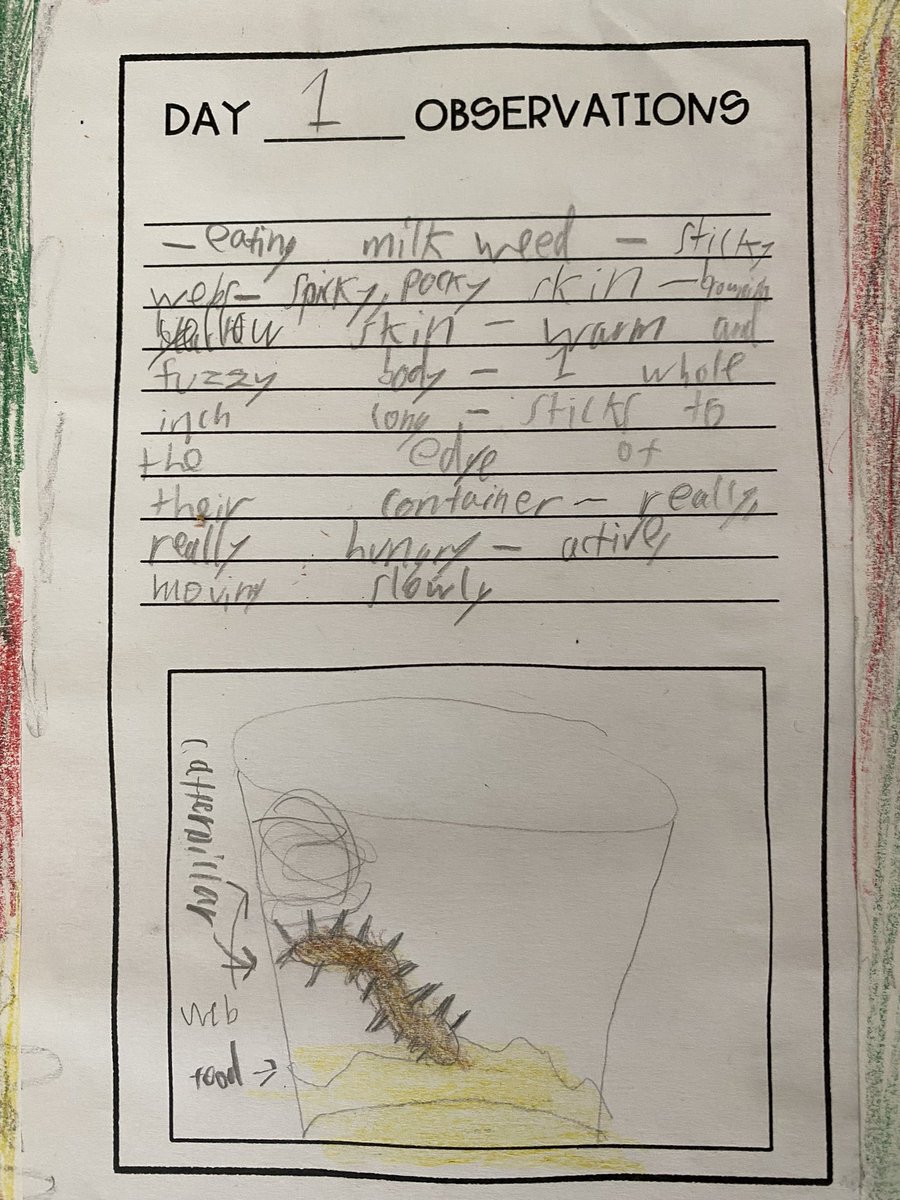 DAY 1 OBSERVATIONS
- eating milk weed - sticky
webs - spicky, pocky skin - brownish
yellow skin - warm and
fuzzy body - 1 whole
inch long - sticks to
the edge of
their container - really,
really hungry - active,
moving slowly
caterpillar
web
food →